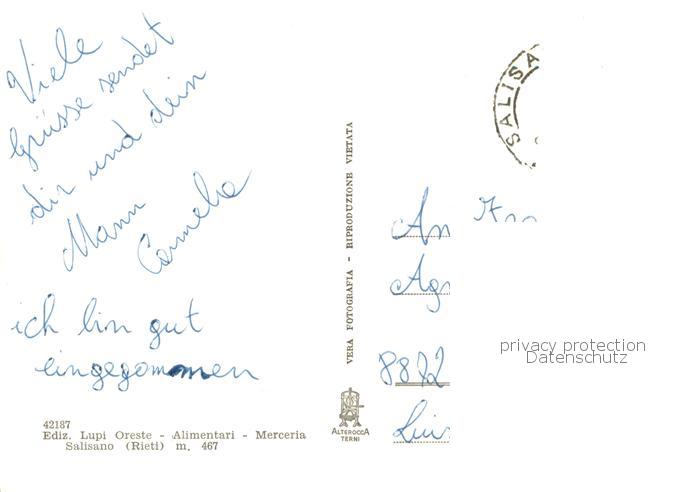 Viele
Grüsse sendet
dir und dein
Mann
ich bin gut
eingegommen
42187
Ediz. Lupi Oreste - Alimentari - Merceria
Salisano (Rieti) m. 467
VERA FOTOGRAFIA - RIPRODUZIONE VIETATA
ALTEROCCA
TERNI
SALISA
An
Agr
8822
privacy protection
Datenschutz